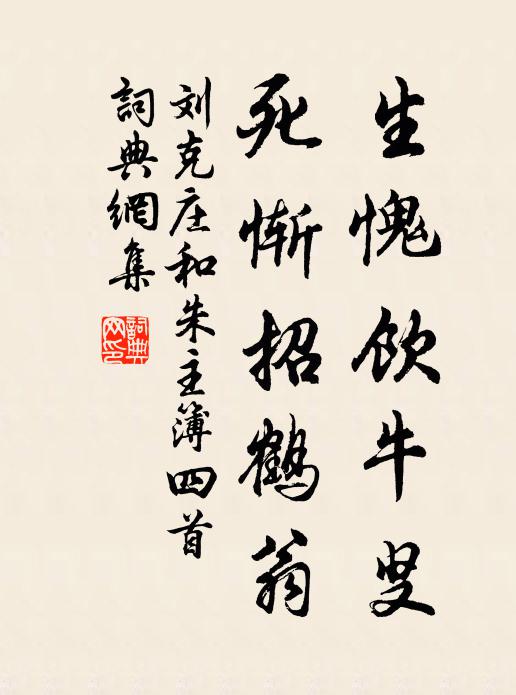 生愧饮牛叟
死惭招鹤翁
刘克庄和朱主簿四首
詞典網集
詞典网印